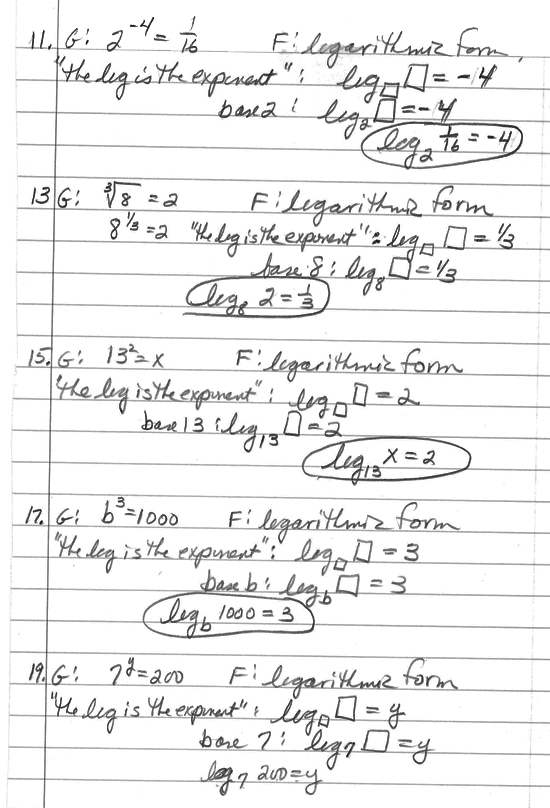 11. G: 2^-4 = 1/16 F: logarithmic form,
"the log is the exponent": log□ □ = -4
base 2: log₂ □ = -4
log₂ 1/16 = -4
13 G: ∛8 = 2 F: logarithmic form
8^1/3 = 2 "the log is the exponent": log□ □ = 1/3
base 8: log₈ □ = 1/3
log₈ 2 = 1/3
15. G: 13² = x F: logarithmic form
"the log is the exponent": log□ □ = 2
base 13: log₁₃ □ = 2
log₁₃ x = 2
17. G: b³ = 1000 F: logarithmic form
"the log is the exponent": log□ □ = 3
base b: log_b □ = 3
log_b 1000 = 3
19. G: 7^y = 200 F: logarithmic form
"the log is the exponent": log□ □ = y
base 7: log₇ □ = y
log₇ 200 = y